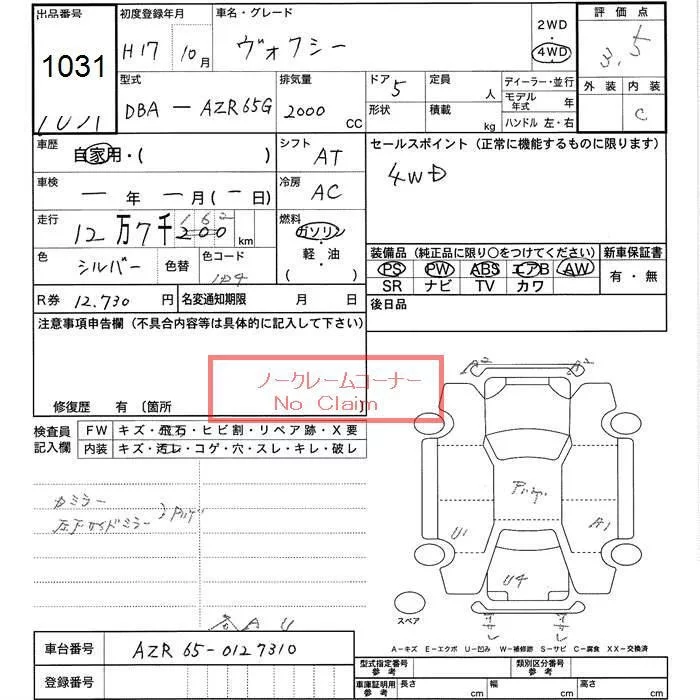 出品番号 初度登録年月 車名・グレード 2WD 評価点
1031 H17 10月 ヴォクシー 4WD 3.5
型式 排気量 ドア 5 定員 人 ディーラー・並行 外装 内装
DBA-AZR65G 2000 CC 形状 積載 kg モデル年式 年 C
ハンドル 左・右
車歴 自家用・( ) シフト AT セールスポイント(正常に機能するものに限ります)
車検 ー年ー月(ー日) 冷房 AC 4WD
走行 12万7千 162 200 km 燃料 ガソリン
軽・油
( )
装備品(純正品に限り○をつけてください) 新車保証書
色 シルバー 色替 色コード PS PW ABS エアB AW 有・無
SR ナビ TV カワ
R券 12.730 円 名変通知期限 月 日 後日品
注意事項申告欄(不具合内容等は具体的に記入して下さい)
ノークレームコーナー
No Claim
修復歴 有〔箇所 〕
検査員記入欄 FW キズ・飛石・ヒビ割・リペア跡・X要
内装 キズ・汚レ・コゲ・穴・スレ・キレ・破レ
U1 A1
U4
スペア
A-キズ E-エクボ U-凹み W-補修跡 S-サビ C-腐食 XX-交換済
車台番号 AZR65-0127310 型式指定番号 参考 類別区分番号 参考
登録番号 車庫証明用 参考 長さ cm 幅 cm 高さ cm